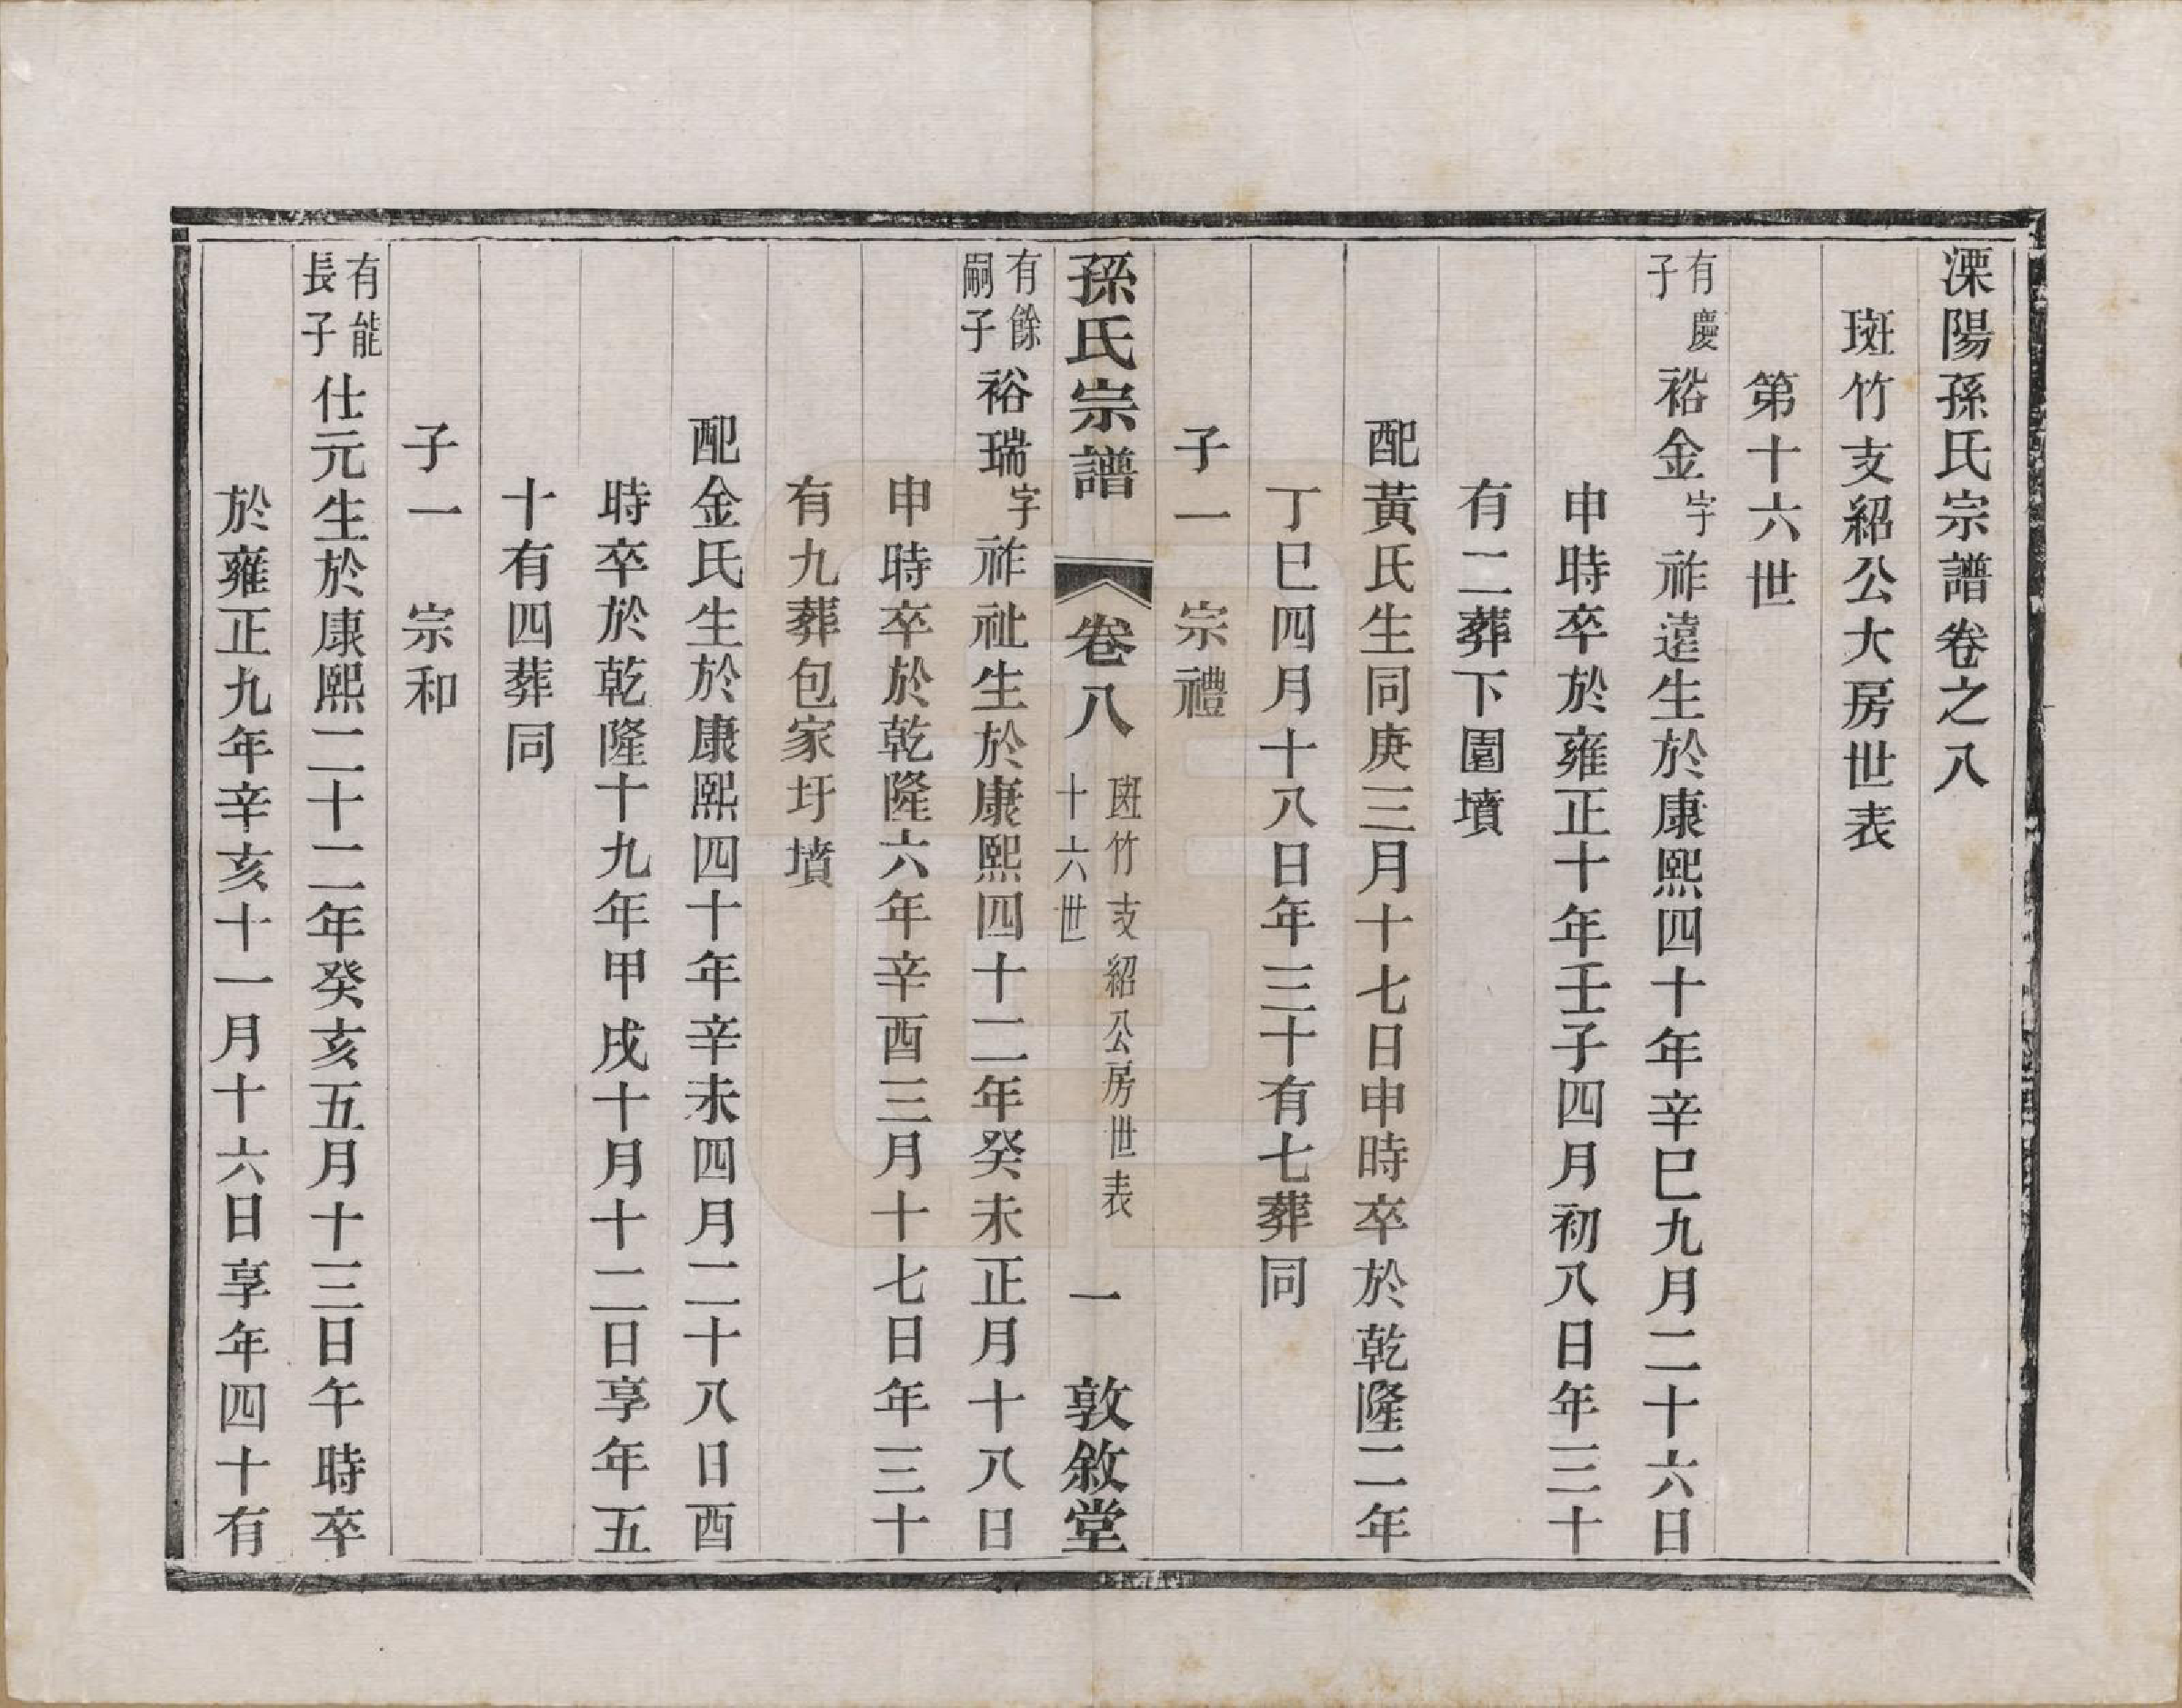 溧陽孫氏宗譜卷之八
斑竹支紹公大房世表
第十六世
有慶子裕金字祚遠生於康熙四十年辛巳九月二十六日
申時卒於雍正十年壬子四月初八日年三十
有二葬下園墳
配黃氏生同庚三月十七日申時卒於乾隆二年
丁巳四月十八日年三十有七葬同
子一 宗禮
孫氏宗譜 卷八 斑竹支紹公房世表 十六世 一 敦敘堂
有餘嗣子裕瑞字祚祉生於康熙四十二年癸未正月十八日
申時卒於乾隆六年辛酉三月十七日年三十
有九葬包家圩墳
配金氏生於康熙四十年辛未四月二十八日酉
時卒於乾隆十九年甲戌十月十二日享年五
十有四葬同
子一 宗和
有能長子仕元生於康熙二十二年癸亥五月十三日午時卒
於雍正九年辛亥十一月十六日享年四十有